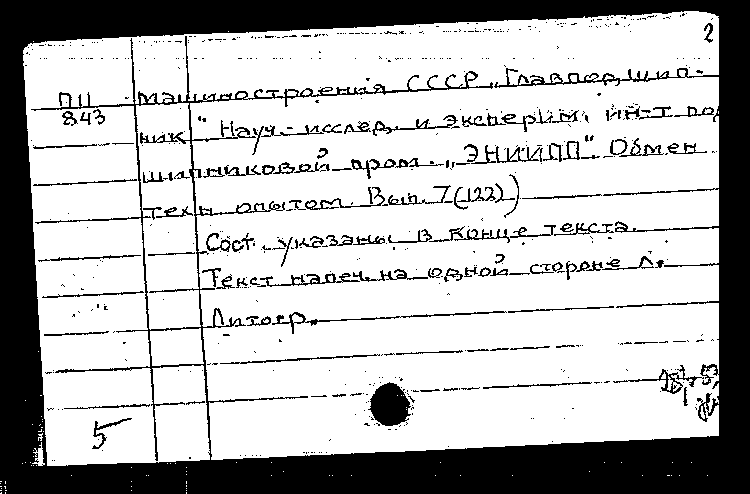 2
ПII машиностроения СССР „Главподшип-
843
ник". Науч.-исслед. и эксперим. ин-т под
шипниковой пром. „ЭНИИПП". Обмен
техн. опытом. Вып. 7(122))
Сост. указаны в конце текста.
Текст напеч. на одной стороне л.
Литогр.
5